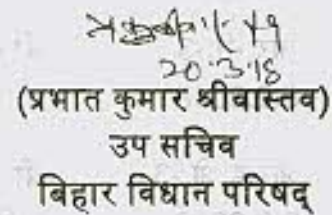 20.3.18
(प्रभात कुमार श्रीवास्तव)
उप सचिव
बिहार विधान परिषद्